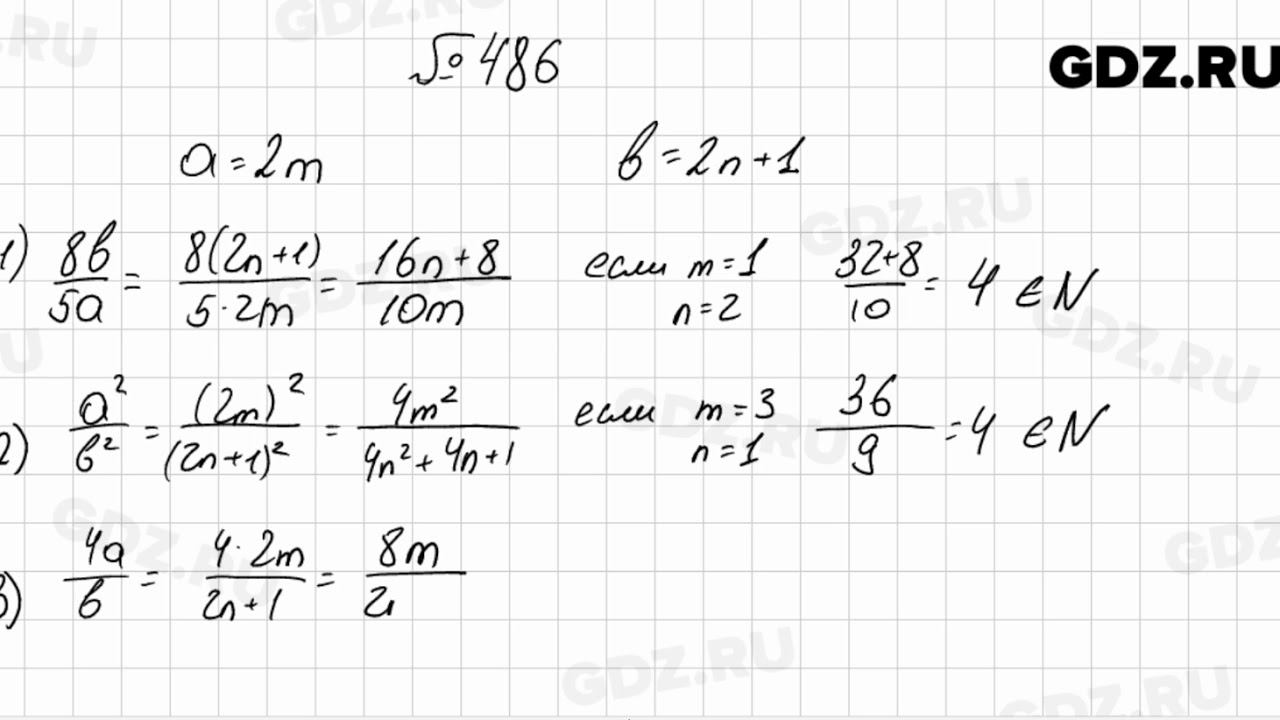 № 486
GDZ.RU
a = 2m
b = 2n + 1
1) 8b/5a = 8(2n+1)/5·2m = 16n+8/10m если m = 1 n = 2 32+8/10 = 4 ∈ N
2) a²/b² = (2m)²/(2n+1)² = 4m²/4n²+4n+1 если m = 3 n = 1 36/9 = 4 ∈ N
3) 4a/b = 4·2m/2n+1 = 8m/2